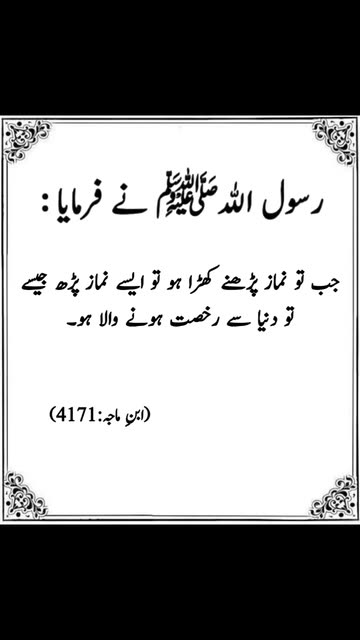 رسول اللہ ﷺ نے فرمایا :
جب تو نماز پڑھنے کھڑا ہو تو ایسے نماز پڑھ جیسے
تو دنیا سے رخصت ہونے والا ہو۔
(ابنِ ماجہ:4171)